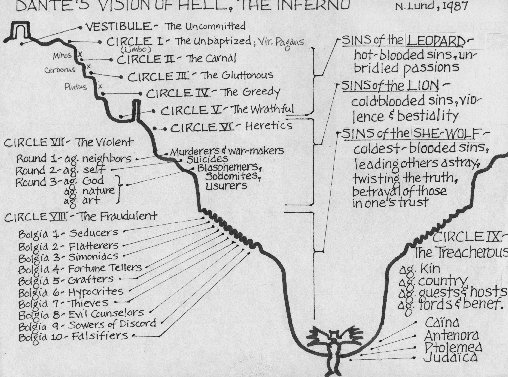 DANTE'S VISION OF HELL, THE INFERNO
N. Lund, 1987
VESTIBULE - The Uncommitted
CIRCLE I - The Unbaptized; Vir. Pagans
(Limbo)
Minos
CIRCLE II - The Carnal
Cerberus
CIRCLE III - The Gluttonous
Plutus
CIRCLE IV - The Greedy
CIRCLE V - The Wrathful
CIRCLE VI - Heretics
CIRCLE VII - The Violent
Round 1 - ag. neighbors
Round 2 - ag. self
Round 3 - ag. God
ag. nature
ag. art
Murderers & war-makers
Suicides
Blasphemers,
Sodomites,
Usurers
CIRCLE VIII - The Fraudulent
Bolgia 1 - Seducers
Bolgia 2 - Flatterers
Bolgia 3 - Simoniacs
Bolgia 4 - Fortune Tellers
Bolgia 5 - Grafters
Bolgia 6 - Hypocrites
Bolgia 7 - Thieves
Bolgia 8 - Evil Counselors
Bolgia 9 - Sowers of Discord
Bolgia 10 - Falsifiers
SINS of the LEOPARD -
hot-blooded sins, un-
bridled passions
SINS of the LION -
coldblooded sins, vio-
lence & bestiality
SINS of the SHE-WOLF -
coldest-blooded sins,
leading others astray,
twisting the truth,
betrayal of those
in one's trust
CIRCLE IX -
The Treacherous
Ag. Kin
Ag. country
Ag. guests & hosts
Ag. lords & benef.
Caïna
Antenora
Ptolemea
Judaica